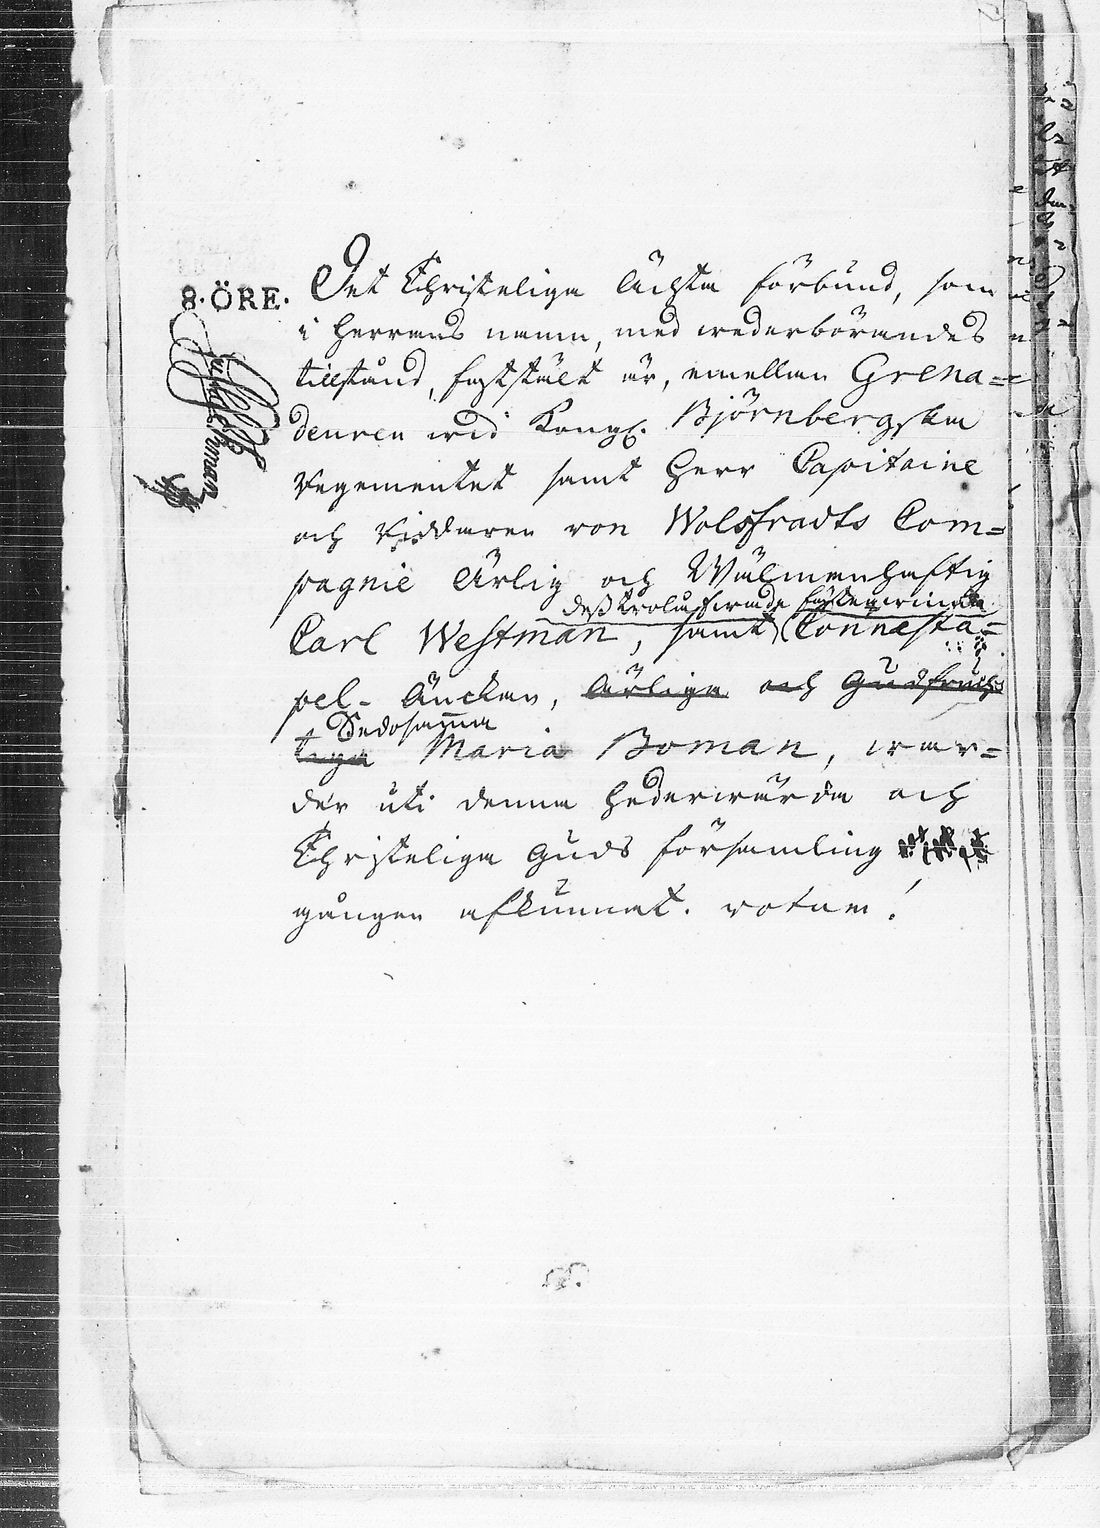 8·ÖRE. Det Christeliga Ächta förbund, som
i Herrans namn, med wederbörandes
tillstånd, fastställt är, emellan Grena=
deuren wid Kongl. Björneborgska
Regementet samt Herr Capitaine
och Riddaren von Wolsfradts Com=
pagnie Ärlig och Wälmanhaftig
dess trolofwade fästeqwinna
Carl Westman, samt Connesta=
pel-Änckan, Ärliga och Gudfruch
Dedosamma
tiga Maria Boman, war=
der uti denna Hederwärda och
Christeliga Guds församling
gången afkunnat. votum!